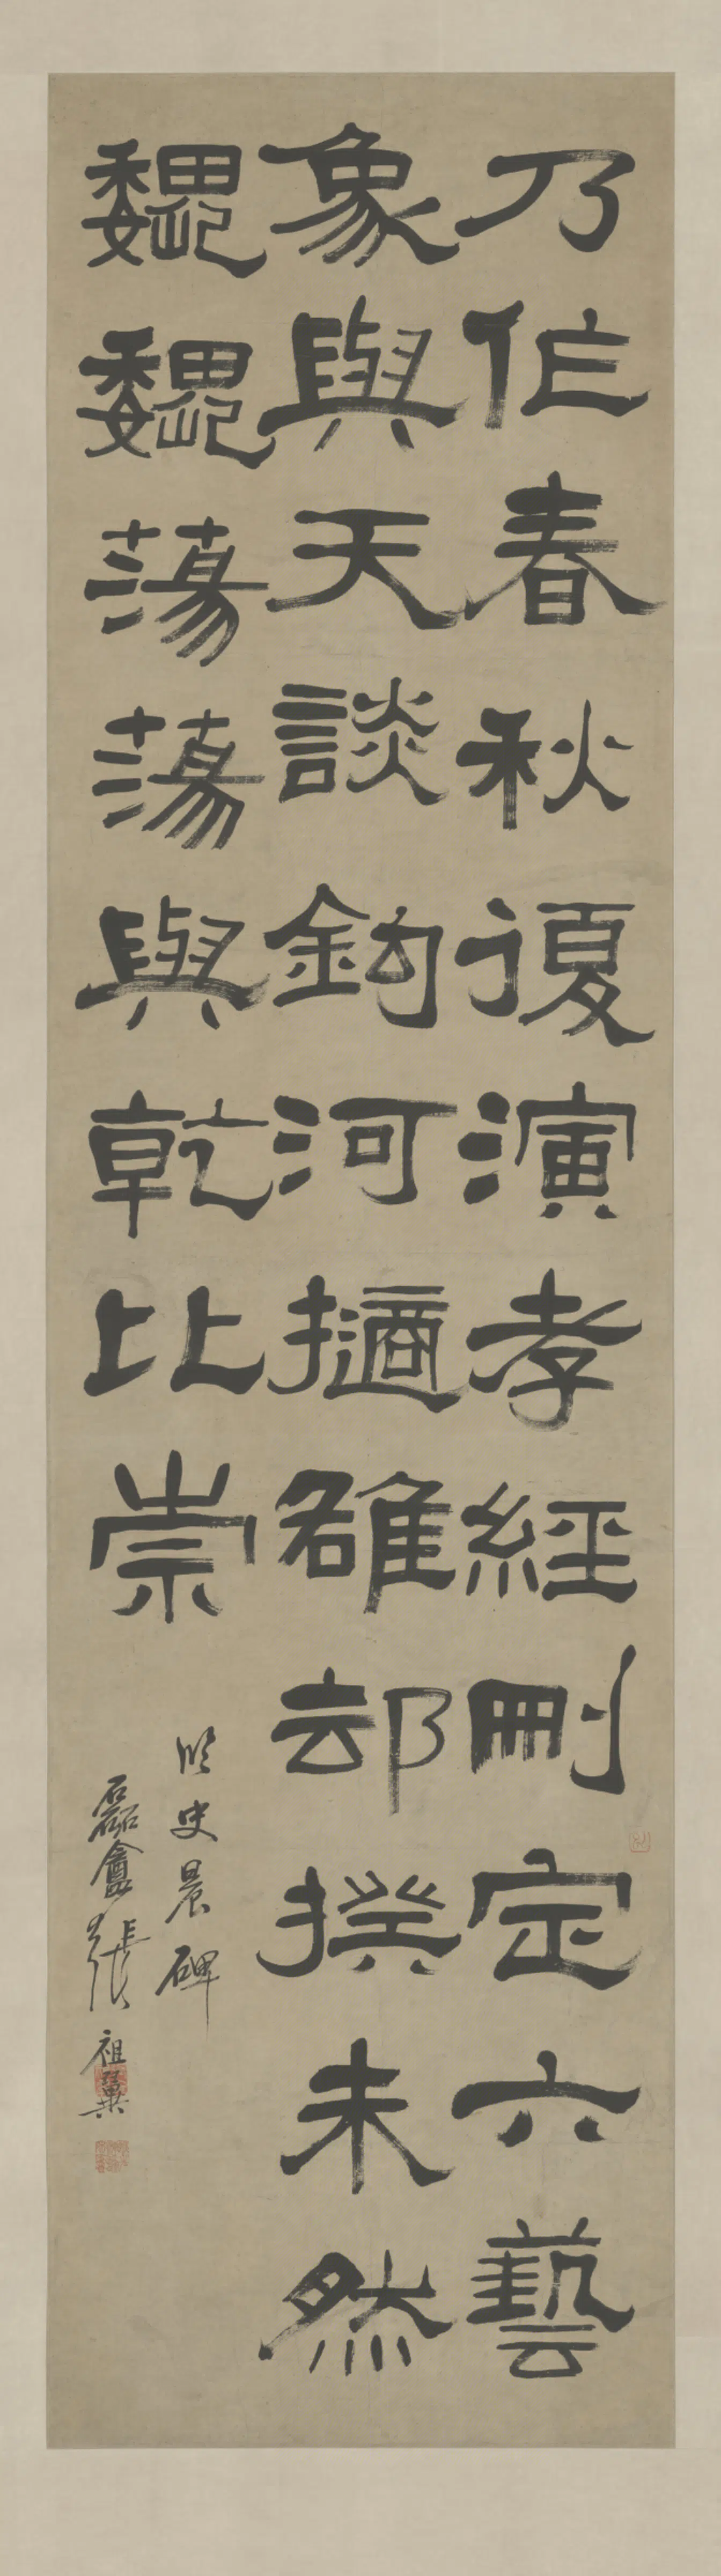 乃作春秋復演孝經刪定六藝
象與天談鉤河擿雒却揆未然
魏魏蕩蕩與乾比崇
臨史晨碑
磊盦張祖翼